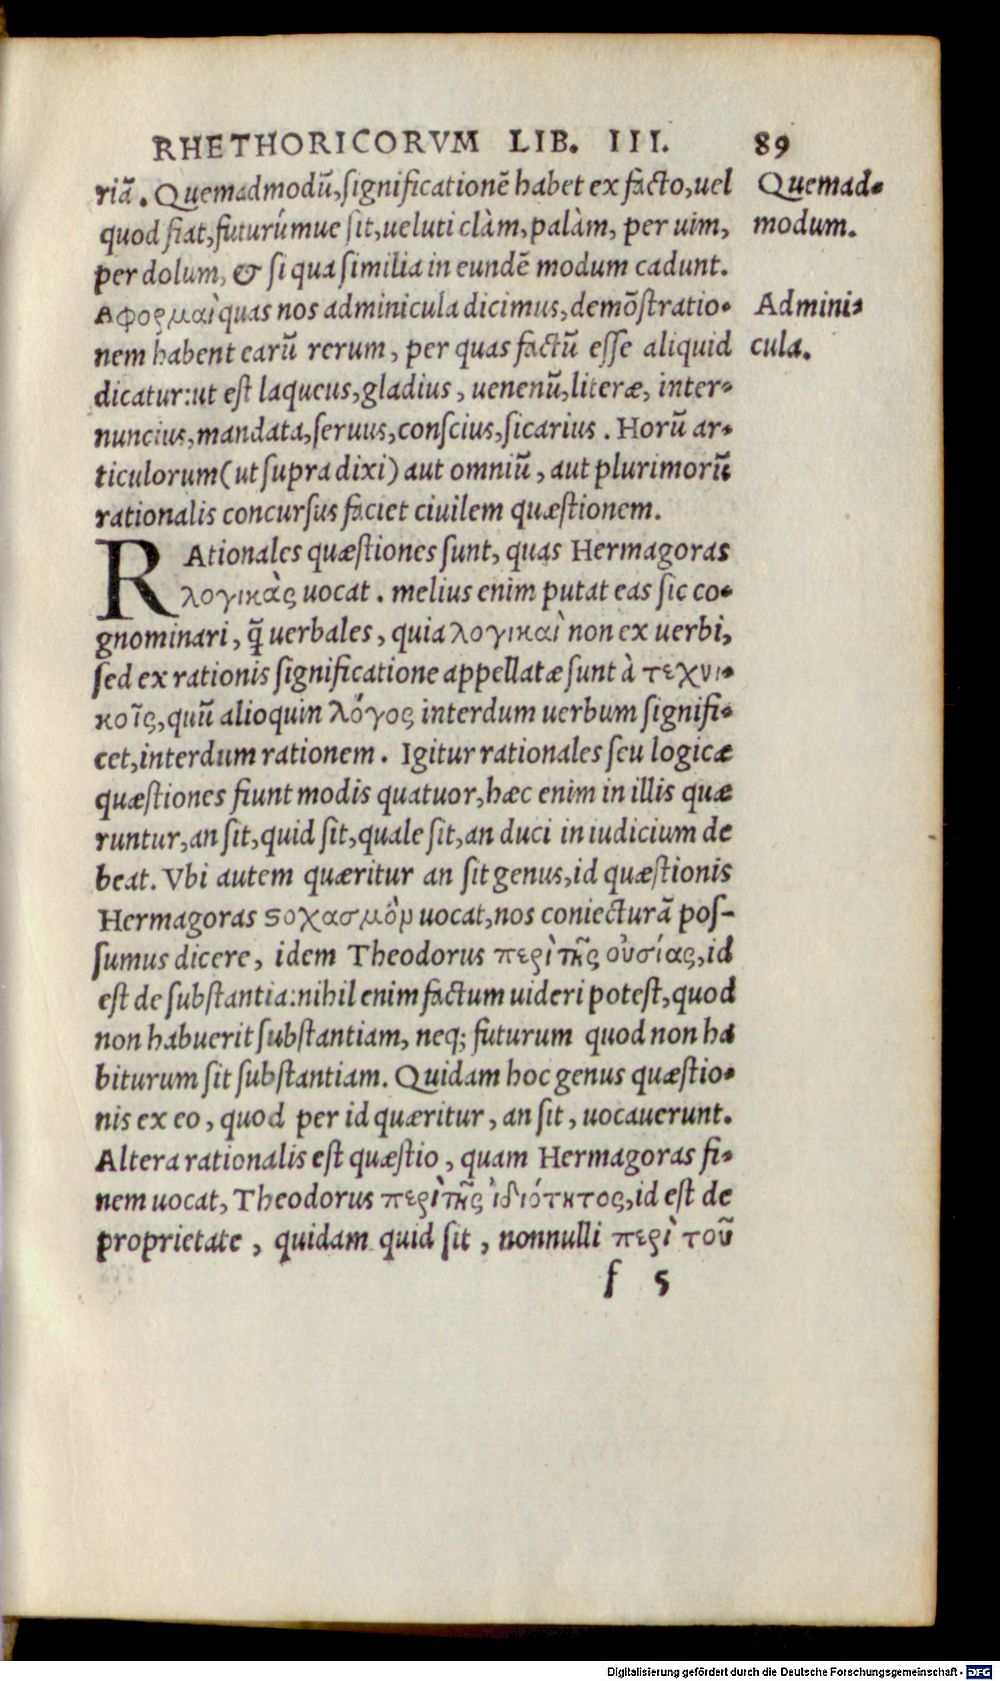 RHETHORICORVM LIB. III. 89
riā. Quemadmodū, ſignificationē habet ex facto, uel
Quemad-
quod fiat, futurúmue ſit, ueluti clàm, palàm, per uim,
modum.
per dolum, & ſi qua ſimilia in eundē modum cadunt.
Αφορμαὶ quas nos adminicula dicimus, demōſtratio-
Admini-
nem habent earū rerum, per quas factū eſſe aliquid
cula.
dicatur: ut eſt laqueus, gladius, uenenū, literæ, inter-
nuncius, mandata, ſeruus, conſcius, ſicarius. Horū ar-
ticulorum (ut ſupra dixi) aut omniū, aut plurimorū
rationalis concurſus faciet ciuilem quæſtionem.
RAtionales quæſtiones ſunt, quas Hermagoras
λογικὰς uocat. melius enim putat eas ſic co-
gnominari, q̄ uerbales, quia λογικαὶ non ex uerbi,
ſed ex rationis ſignificatione appellatæ ſunt à τεχνι-
κοῖς, quū alioquin λόγος interdum uerbum ſignifi-
cet, interdum rationem. Igitur rationales ſeu logicæ
quæſtiones fiunt modis quatuor, hæc enim in illis quæ
runtur, an ſit, quid ſit, quale ſit, an duci in iudicium de
beat. Vbi autem quæritur an ſit genus, id quæſtionis
Hermagoras ϛοχασμὸν uocat, nos coniecturā poſ-
ſumus dicere, idem Theodorus περὶ τῆς οὐσίας, id
eſt de ſubſtantia: nihil enim factum uideri poteſt, quod
non habuerit ſubſtantiam, neq; futurum quod non ha
biturum ſit ſubſtantiam. Quidam hoc genus quæſtio-
nis ex eo, quod per id quæritur, an ſit, uocauerunt.
Altera rationalis eſt quæſtio, quam Hermagoras fi-
nem uocat, Theodorus περὶ τῆς ἰδιότητος, id eſt de
proprietate, quidam quid ſit, nonnulli περὶ τοῦ
f 5
Digitalisierung gefördert durch die Deutsche Forschungsgemeinschaft - DFG